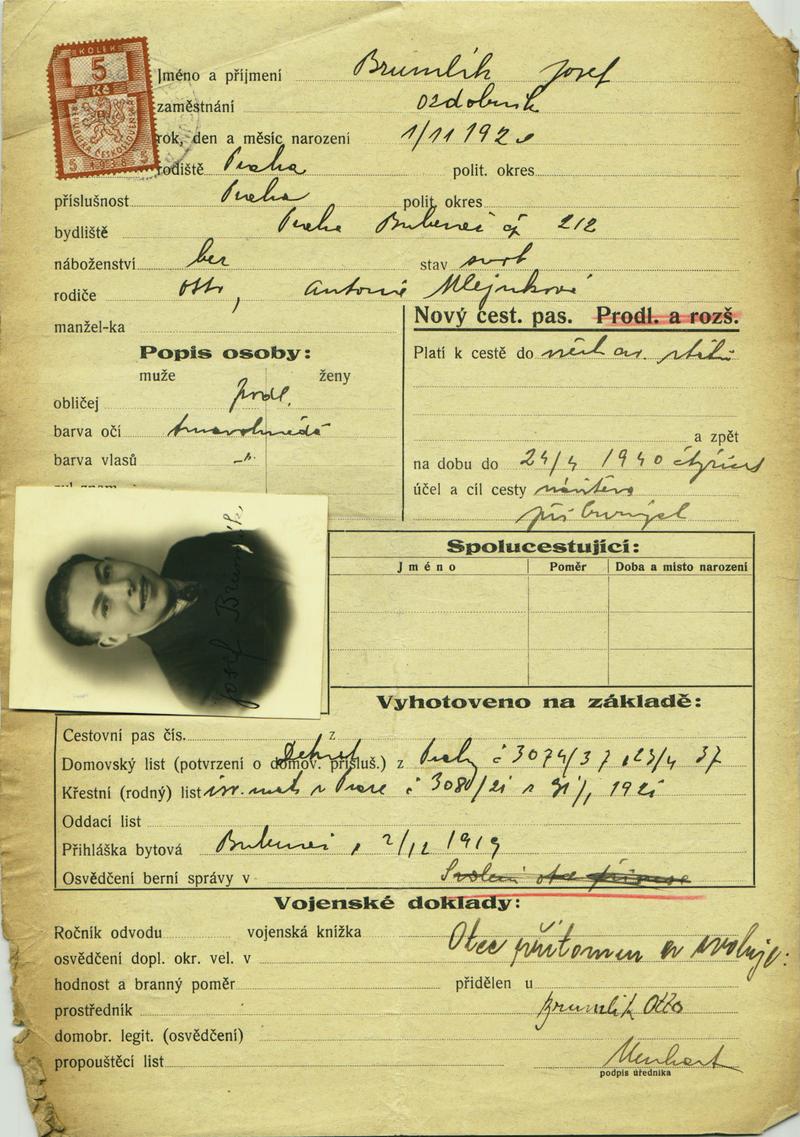 KOLEK
5
Kč
REPUBLIKA ČESKOSLOVENSKÁ
5 1938 5
Jméno a příjmení Brumlík Josef
zaměstnání ozdobník
rok, den a měsíc narození 1/11 1920
rodiště Praha polit. okres
příslušnost Praha polit. okres
bydliště Praha Bubeneč čj 212
náboženství bez stav svob
rodiče Otto, Antonie Mlejnková
manžel-ka
Nový cest. pas. Prodl. a rozš.
Popis osoby:
muže ženy
obličej podl.
barva očí tmavohnědé
barva vlasů -"-
Platí k cestě do všech států
a zpět
na dobu do 24/4 1940
účel a cíl cesty návštěva
Josef Brumlík
Spolucestující:
Jméno Poměr Doba a místo narození
Vyhotoveno na základě:
Cestovní pas čís. z
Domovský list (potvrzení o domov. přísluš.) z Prahy č 3074/37 23/4 37
Křestní (rodný) list isr. mat. v Praze č 3080/21 31/1 1921
Oddací list
Přihláška bytová Bubeneč 2/12 1919
Osvědčení berní správy v
Vojenské doklady:
Ročník odvodu vojenská knížka
osvědčení dopl. okr. vel. v
Otec přítomen a svoluje:
hodnost a branný poměr přidělen u
prostředník Brumlík Otto
domobr. legit. (osvědčení)
propouštěcí list
podpis úředníka